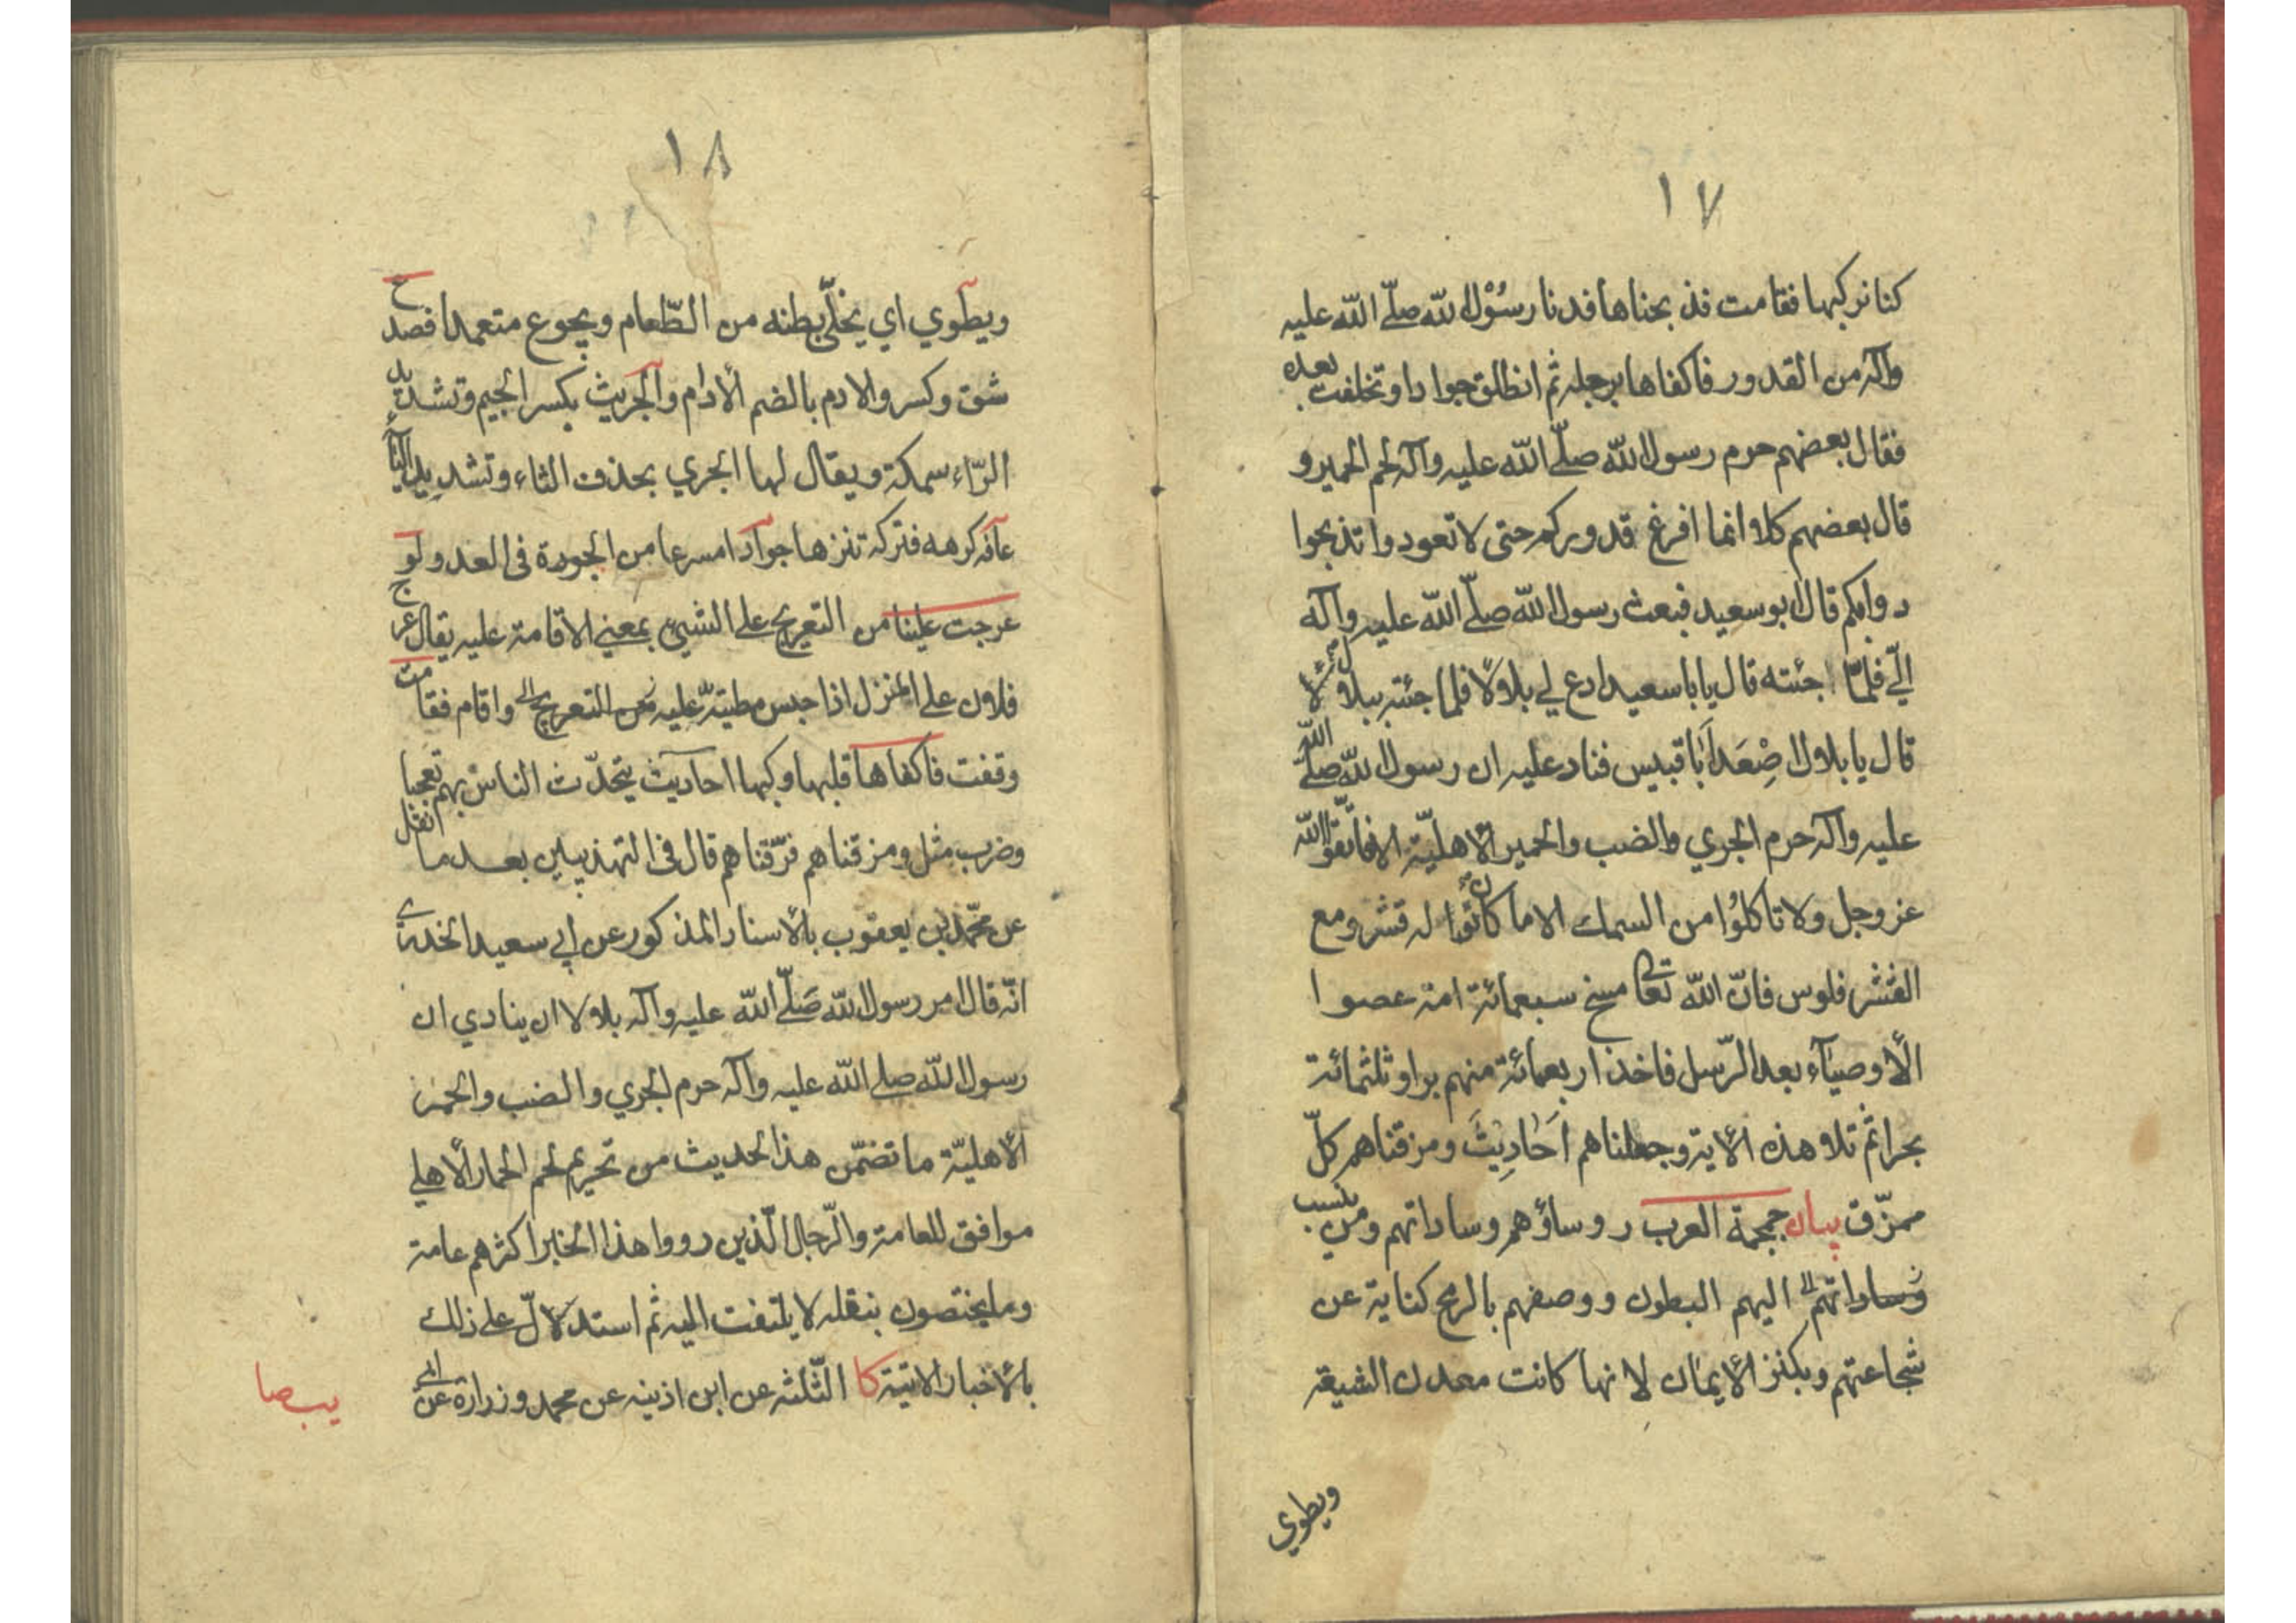 ١٧
كنا نركبها فقامت فذبحناها فدنا رسُوْل الله صلّى الله عليه
وآله من القدور فاكفاها برجله ثم انطلق جوادا وتخلفت بعده
فقال بعضهم حرم رسول الله صلّى الله عليه وآله لحم الحمير و
قال بعضهم كلا انما افرغ قدوركم حتى لا تعودوا تذبحوا
دوابكم قال ابو سعيد فبعث رسول الله صلّى الله عليه وآله
اليّ فلمّا جئته قال يا با سعيد ادع لي بلالا فلما جئته ببلال
قال يا بلال اصْعَد اَبا قبيس فناد عليه ان رسول الله صلّى الله
عليه وآله حرم الجري والضب والحمير الأهليّة الا فاتّقوا الله
عز وجل ولا تاكلوُا من السمك الا ما كان له قشر ومع
القشر فلوس فانّ الله تعالى مسخ سبعمائة امة عصوا
الأوصيآء بعد الرّسل فاخذ اربعمائة منهم برا وثلثمائة
بحرا ثم تلا هذه الأية وجعلناهم اَحَادِيثَ ومزقناهم كلّ
ممزّق بيان جمجمة العرب روساؤهم وساداتهم ومن ينسب
وساداتهم اليهم البطون ووصفهم بالرمح كناية عن
شجاعتهم وبكنز الأيمان لانها كانت معدن الشيعة
ويطوي
١٨
ويطوي اي يخلّي بطنه من الطّعام ويجوع متعمدا فصدع
شق وكسر والادم بالضم الأدام والجريث بكسر الجيم وتشديد
الرّاء سمكة ويقال لها الجري بحذف الثاء وتشديد الياء
عافه كرهه فتركه تنزها جوادا مسرعا من الجودة في العدو لو
عرجت علينا من التعريج على الشيء بمعنى الاقامة عليه يقال عرج
فلان على المنزل اذا حبس مطيتّه عليه من التعريج واقام فقامت
وقفت فاكفاها قلبها وكبها احاديث يتحدّث الناس بهم تعجبا
وضرب مثل ومزقناهم فرّقناهم قال في التهذيبين بعد ما نقل
عن محمّد بن يعقوب بالأسناد المذكور عن ابي سعيد الخدري
انّه قال امر رسول الله صَلّى الله عليه وآله بلالا ان ينادي ان
رسول الله صلى الله عليه وآله حرم الجري والضب والحمر
الأهليّة ما تضمّن هذا الحديث من تحريم لحم الحمار الأهلي
موافق للعامة والرّجال الّذين رووا هذا الخبر اكثرهم عامة
وما يختصون بنقله لا يلتفت اليه ثم استدلّ على ذلك
بالأخبار الاتية كا الثّلثه عن ابن اذينه عن محمد وزرارة عن ابي
يب صا